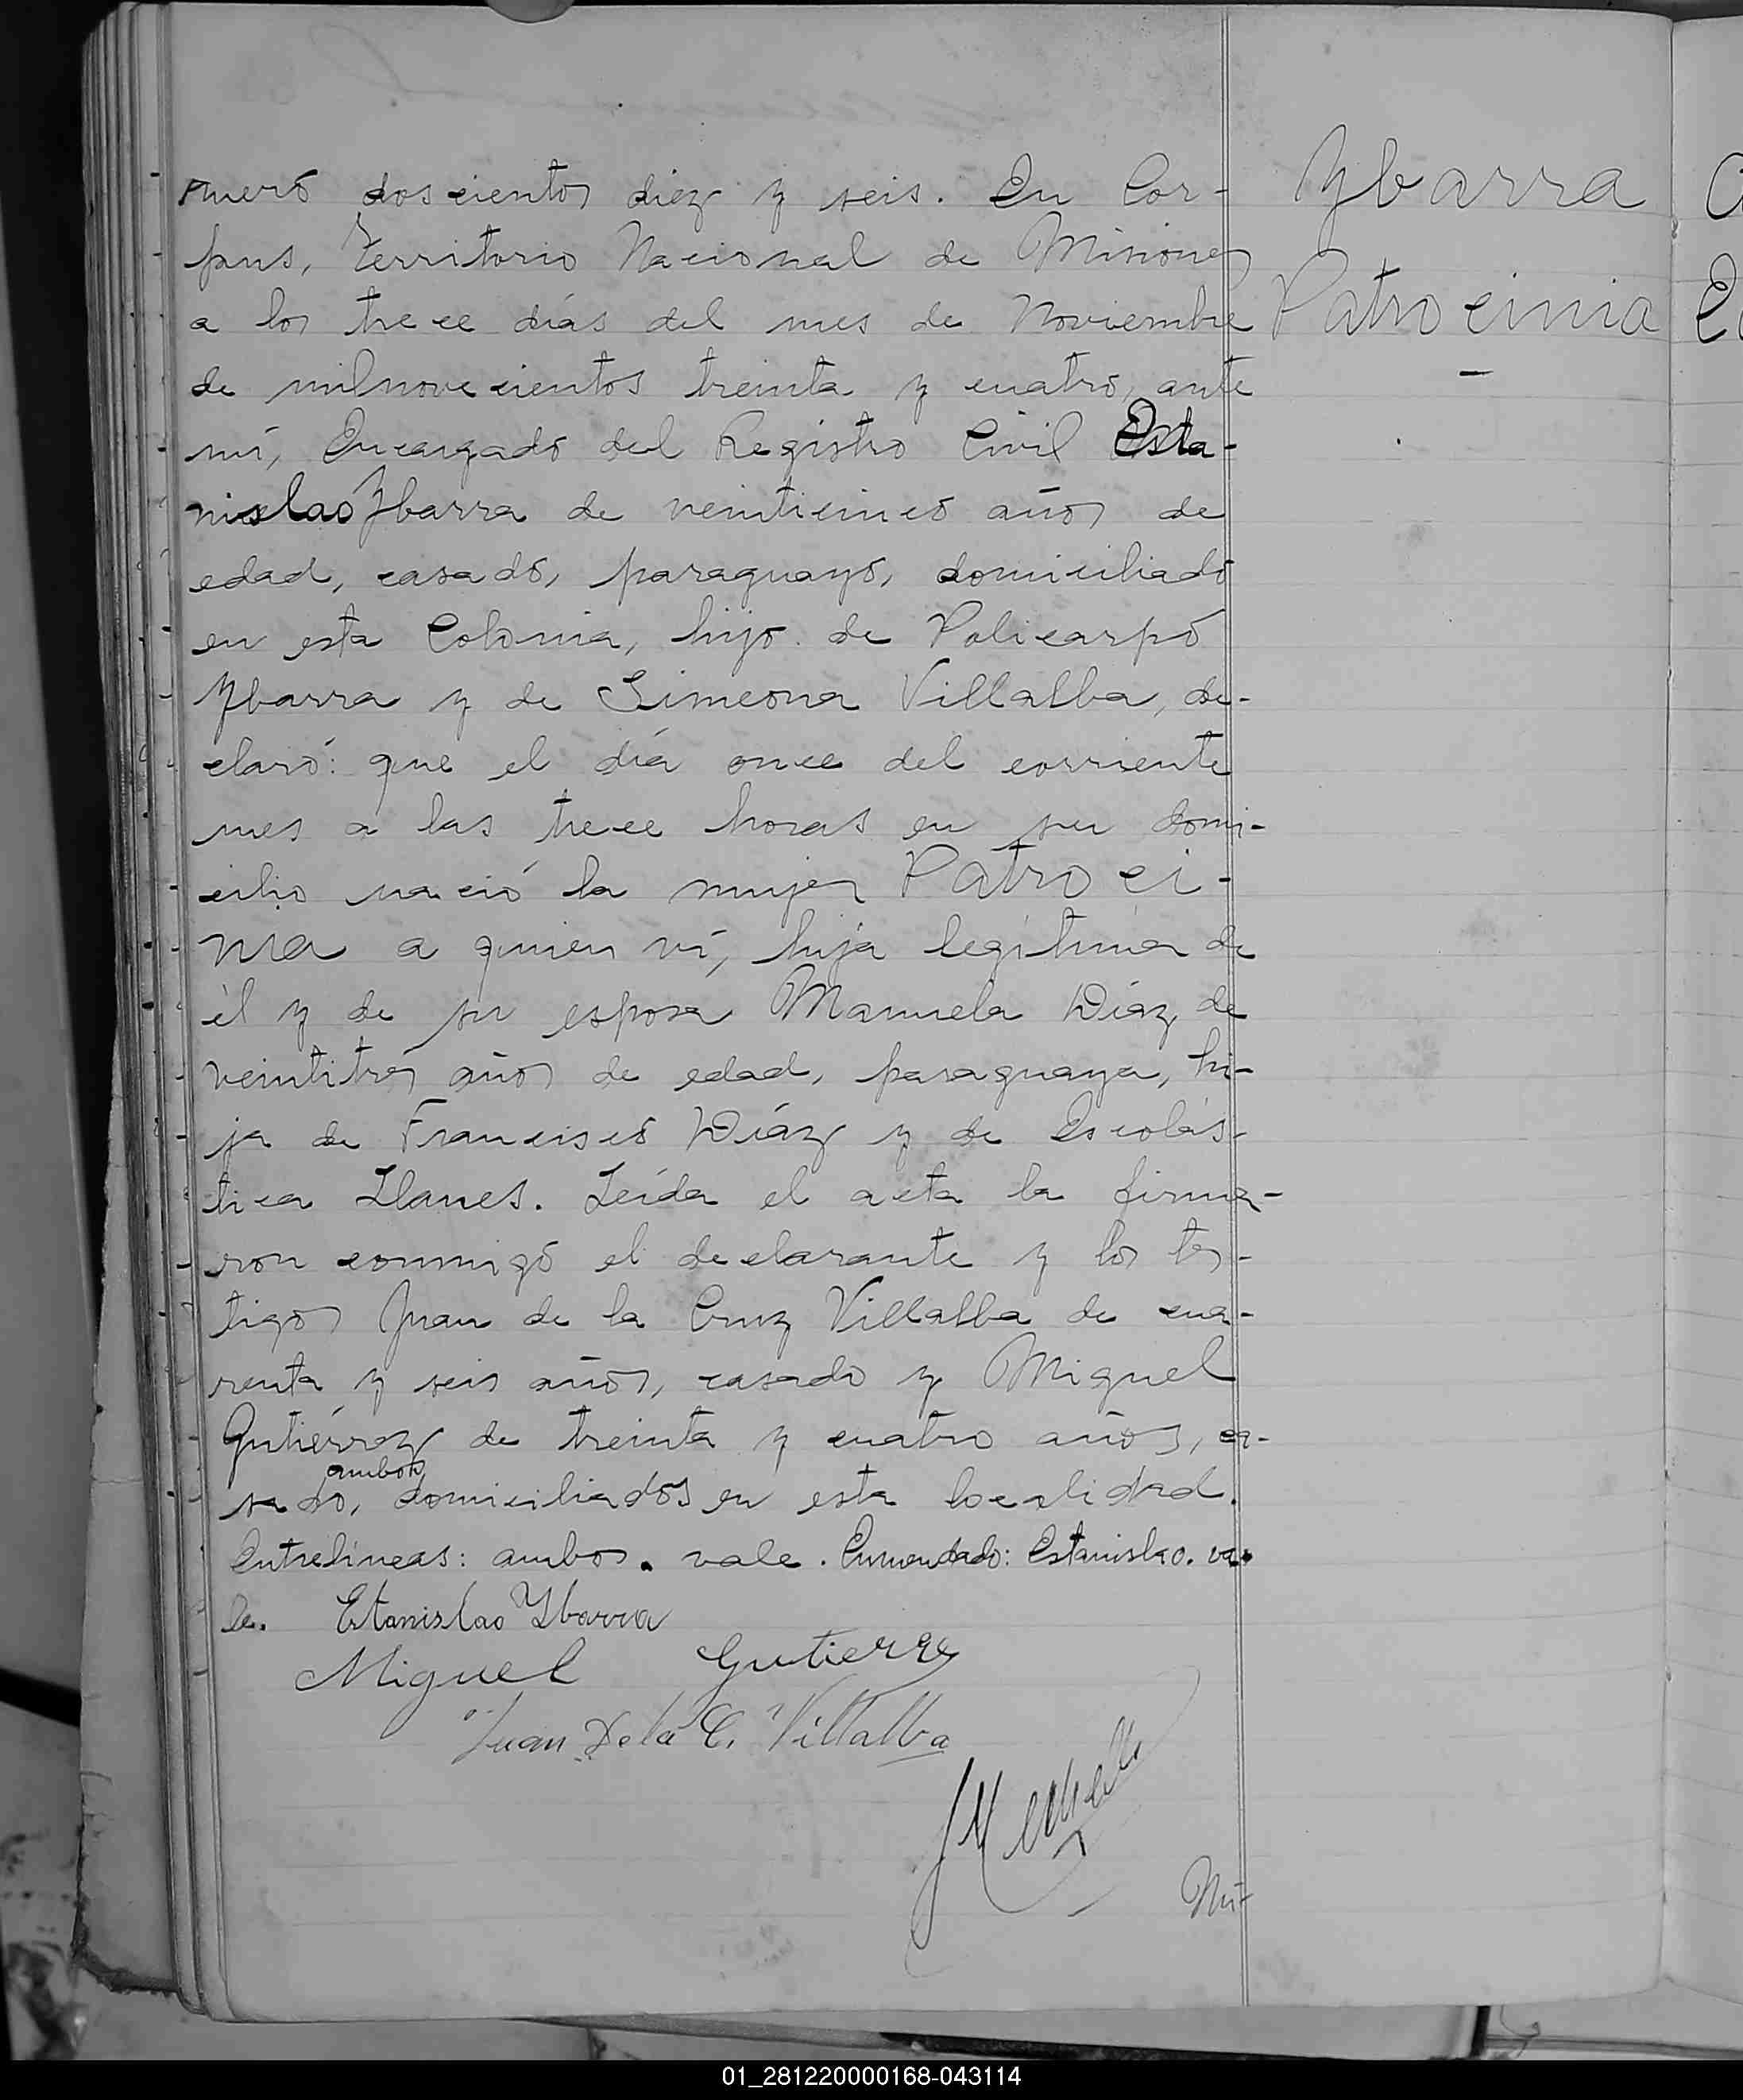 mero doscientos diez y seis. En Cor-
pus, Territorio Nacional de Misiones
a los trece días del mes de Noviembre
de milnovecientos treinta y cuatro, ante
mí, Encargado del Registro Civil Esta-
nislao Ybarra de veinticinco años de
edad, casado, paraguayo, domiciliado
en esta Colonia, hijo de Policarpo
Ybarra y de Simeona Villalba, de-
claró: que el día once del corriente
mes a las trece horas en su domi-
cilio nació la mujer Patroci-
nia a quien ví, hija legítima de
él y de su esposa Manuela Díaz, de
veintitrés años de edad, paraguaya, hi-
ja de Francisco Díaz y de Escolás-
tica Llanes. Leída el acta la firma-
ron conmigo el declarante y los tes-
tigos Juan de la Cruz Villalba de cua-
renta y seis años, casado y Miguel
Gutiérrez de treinta y cuatro años, ca-
ambos
sado, domiciliados en esta localidad.
Entrelíneas: ambos. vale. Enmendado: Estanislao. va-
le. Etanislao Ybarra
Miguel Gutierrez
Juan De la C. Villalba
Nú-
Ybarra
Patrocinia
-
01_281220000168-043114